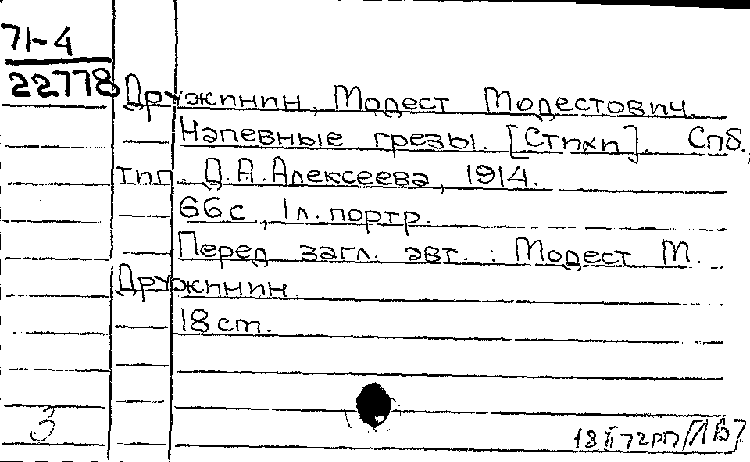 71-4
22778
Дружинин, Модест Модестович.
Напевные грезы. [Стихи]. Спб.,
тип. Д.А.Алексеева, 1914.
66с., 1л. портр.
Перед загл. авт.: Модест М.
Дружинин.
18 см.
3